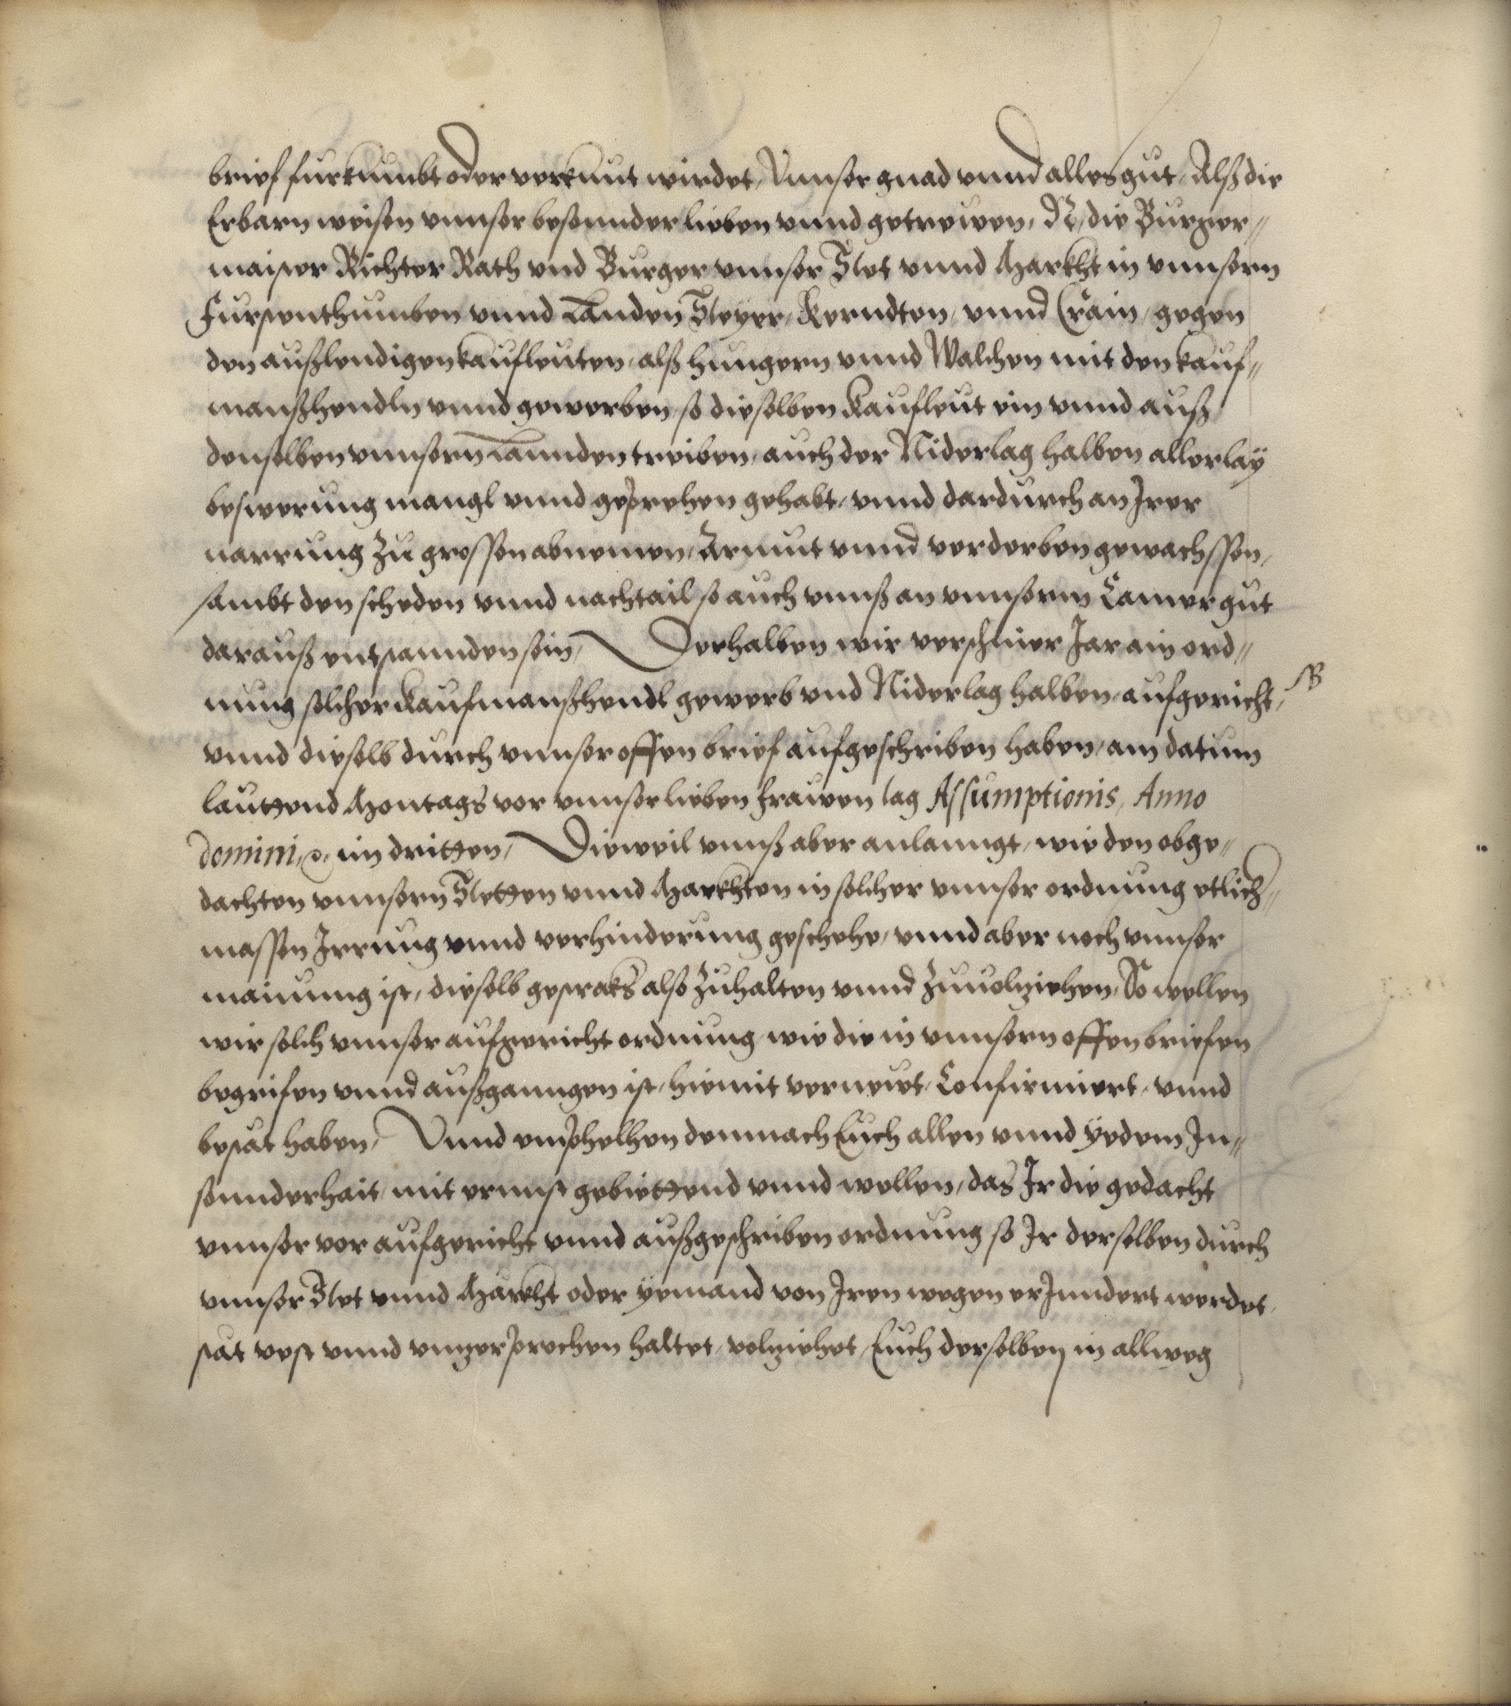 brief furkumbt oder verkunt wirdet, Unnser gnad unnd alles gut, Alß die
Erbarn weisen unnser besonnder lieben unnd getrewen, N, die Burger„
maister Richter Rath und Burger unnser Stet unnd Markht in unnsern
Furstenthumben unnd Landen Steyer, Kerndten, unnd Crain, gegen
den außlendigen kaufleuten, alß Hungern unnd Walchen mit den kauf„
manßhendln unnd gewerben, so dieselben kaufleut ein unnd auß
denselben unnsern Lannden treiben, auch der Niderlag halben allerlaÿ
beswerung mangl unnd geprechen gehabt, unnd dardurch an Irer
narrung zu grossen abnemen, Armut unnd verderben gewachssen,
sambt den scheden unnd nachtail so auch unnß an unnserm Camergut
darauß entstannden sein, Derhalben wir verschiner Jar ain ord„
nung solcher kaufmanßhendl gewerb und Niderlag halben, aufgericht,
NB
unnd dieselb durch unnser offen brief aufgeschriben haben, am datum
lauttend Montags vor unnser lieben frawen tag Assumptionis, Anno
domini, etc. im dritten, Dieweil unnß aber anlanngt, wie den obge„
dachten unnsern Stetten unnd Markhten in solcher unnser ordnung etlich„
massen Irrung unnd verhinderung geschehe, unnd aber noch unnser
mainung ist, dieselb gestraks also zuhalten unnd zuuolziehen, So wellen
wir solch unnser aufgericht ordnung, wie die in unnsern offen briefen
begrifen unnd außganngen ist, hiemit vernewt, Confirmiert, unnd
bestät haben, Unnd emphelhen demnach Euch allen unnd Yedem In„
sonnderhait, mit ernnst gebiettend unnd wellen, das Ir die gedacht
unnser vor aufgericht unnd außgeschriben ordnung so Ir derselben durch
unnser Stet unnd Märkht oder yemand von Iren wegen erInndert werdet,
stät vest unnd unzerprochen haltet, volziehet, Euch derselben in allweg